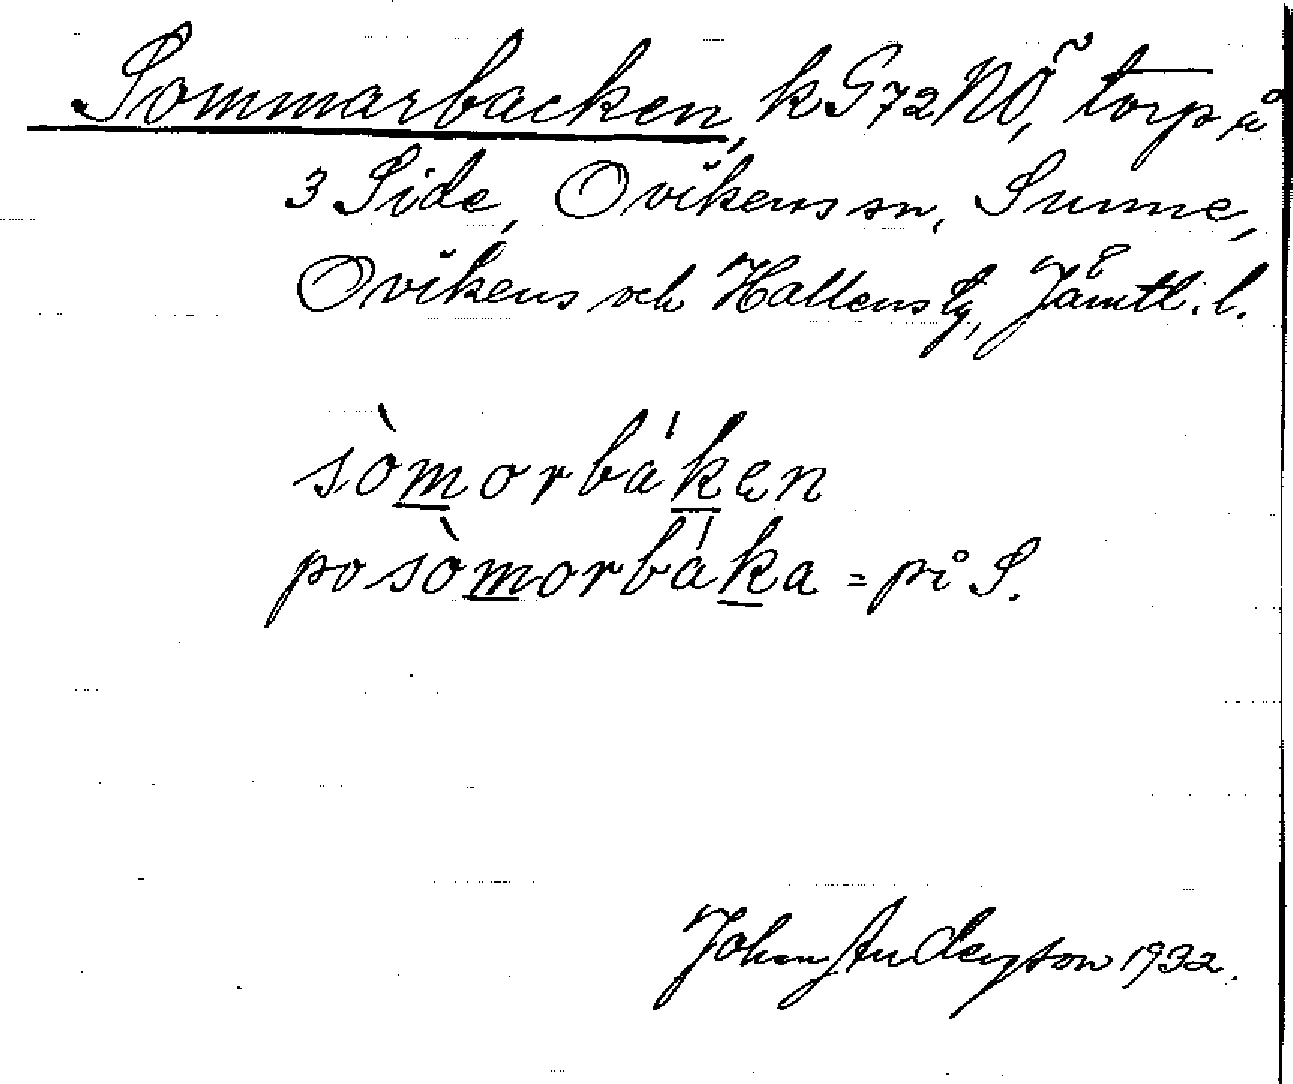 Sommarbacken, k G72NÖ, torp å
3 Side, Ovikens sn, Sunne,
Ovikens och Hallens tg, Jämtl. l.
sòmorbákęn
po sòmorbáka = på S.
John Anderson 1932.